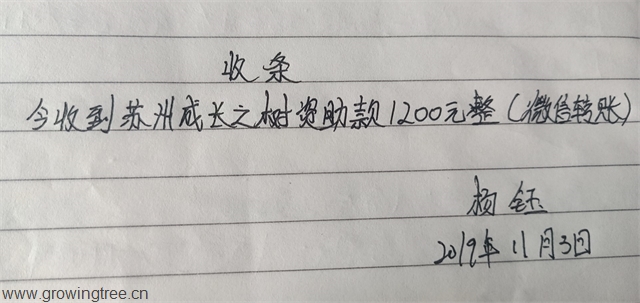 收条
今收到苏州成长之树资助款1200元整(微信转账)
杨钰
2019年11月3日
www.growingtree.cn